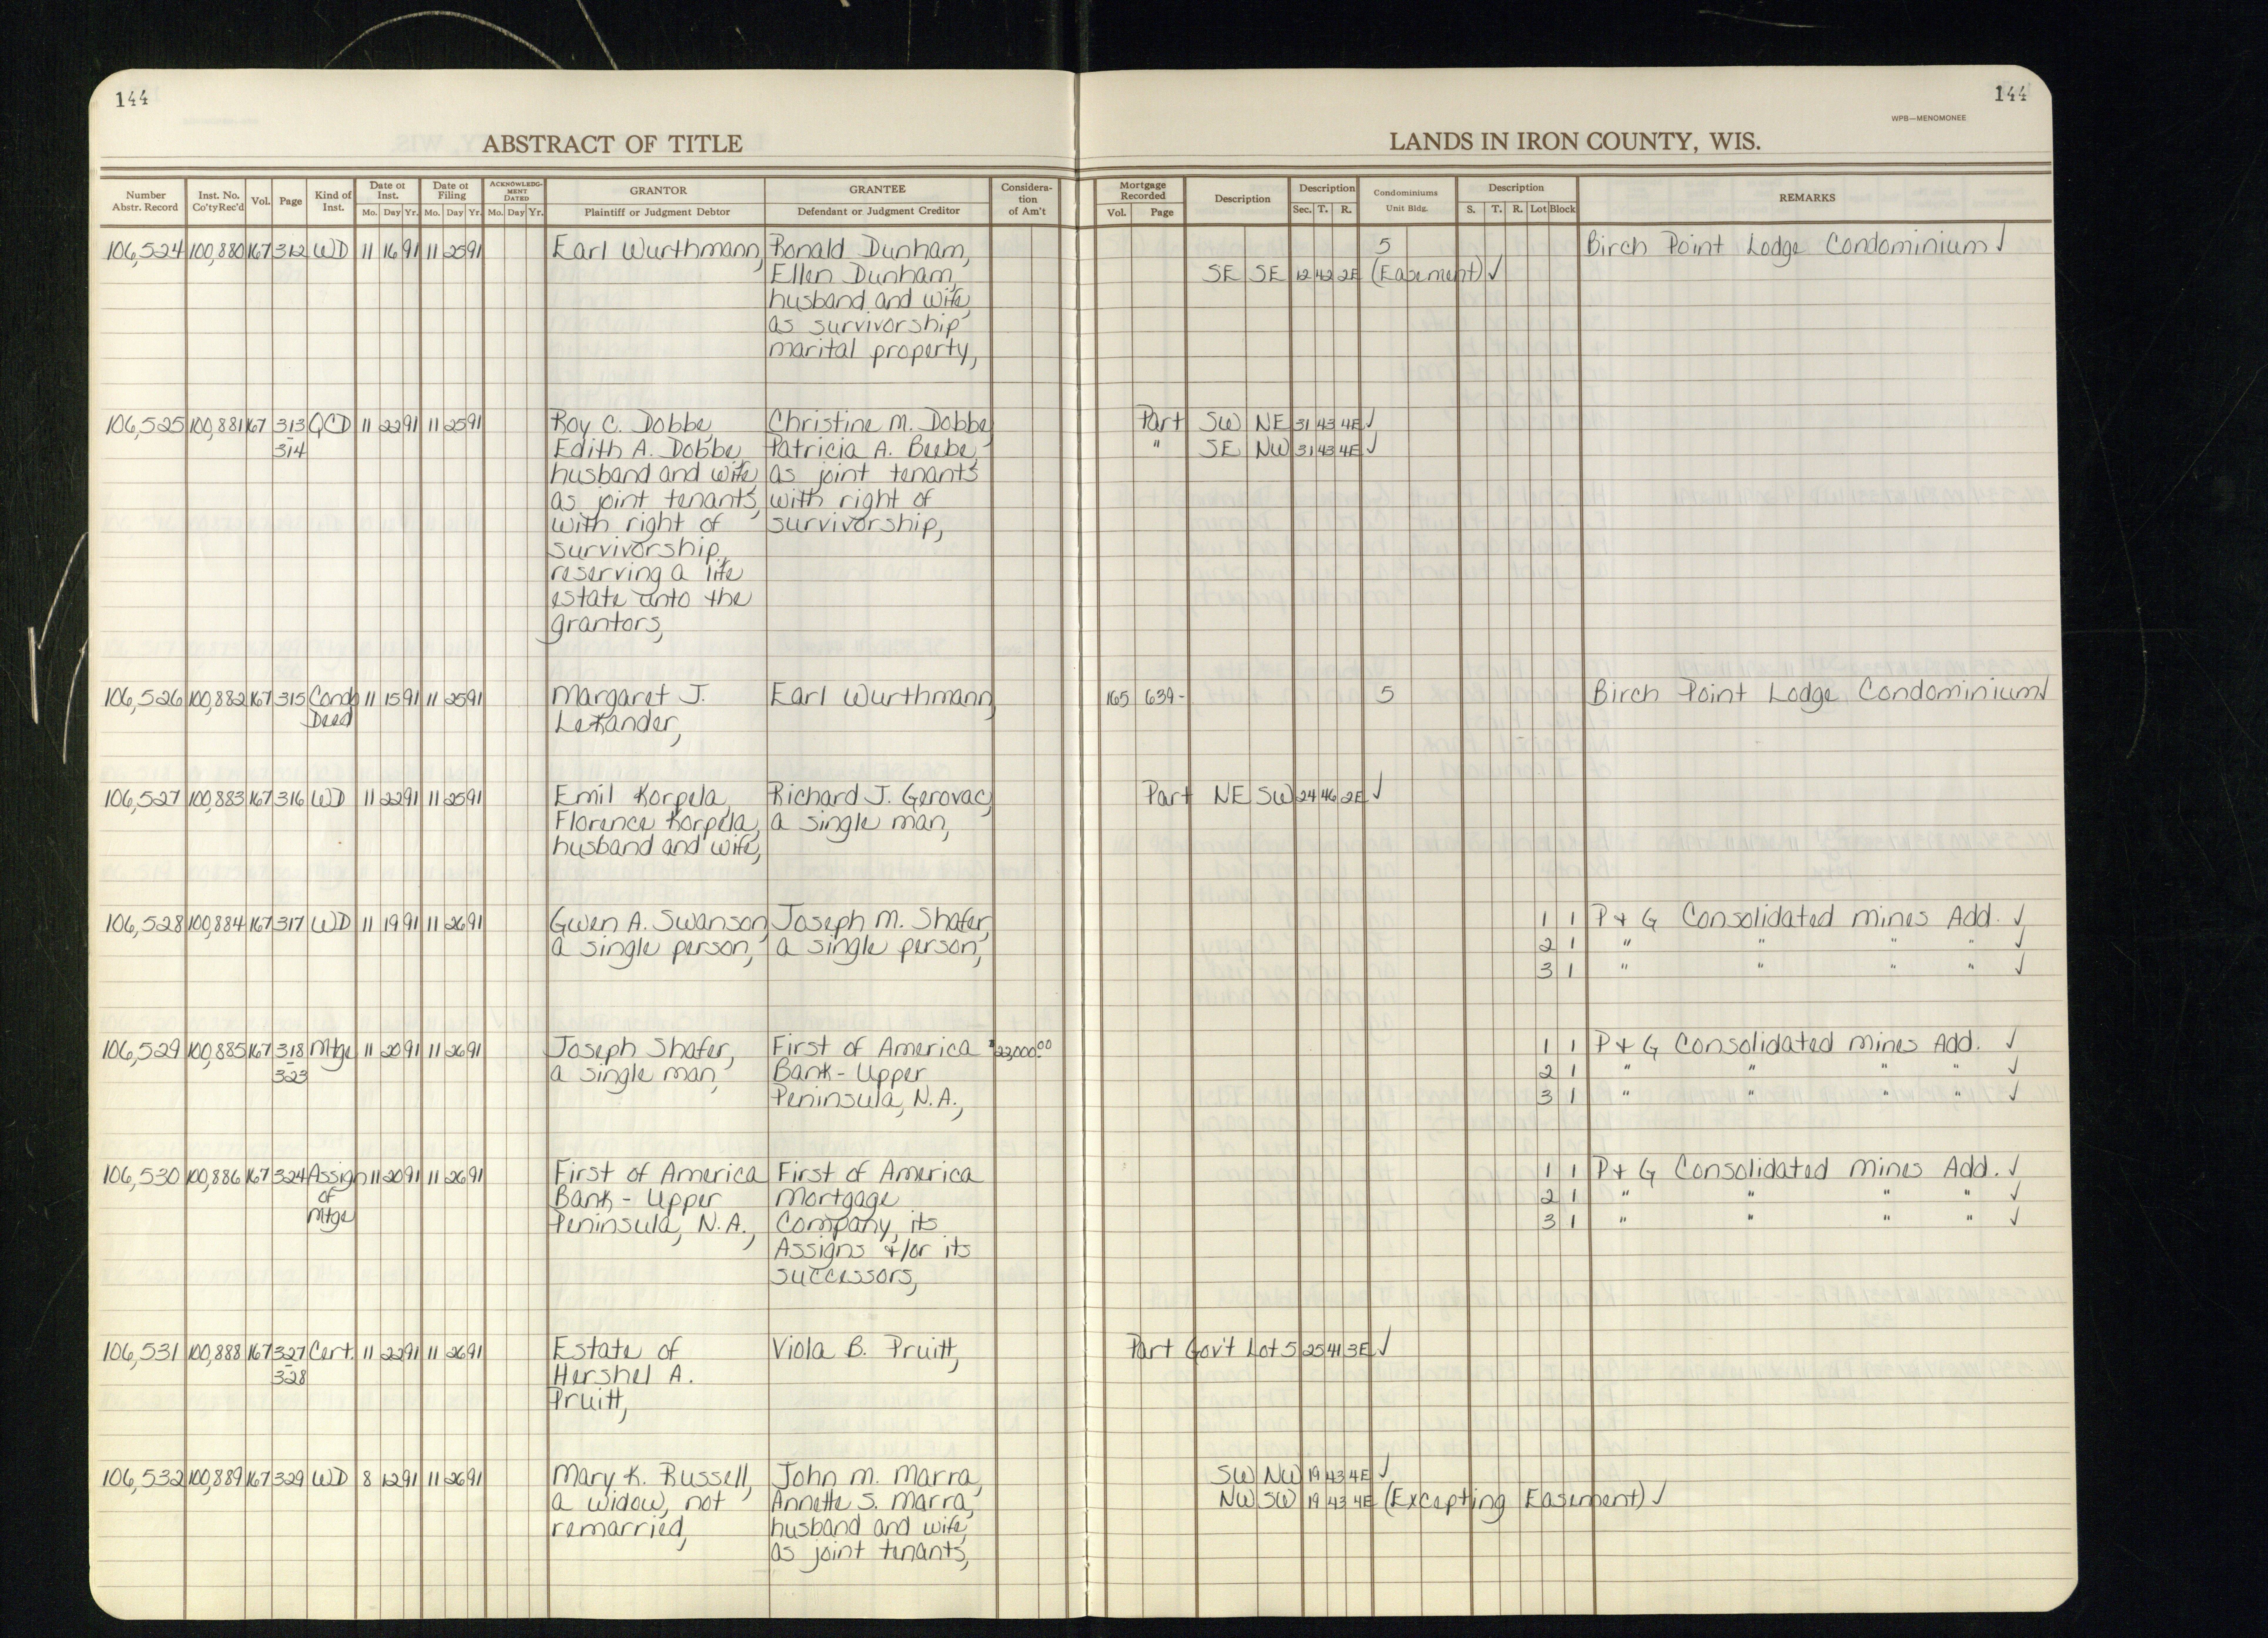 144
144
WPB—MENOMONEE
ABSTRACT OF TITLE
LANDS IN IRON COUNTY, WIS.
Number Abstr. Record
Inst. No. Co'ty Rec'd
Vol.
Page
Kind of Inst.
Date of Inst. Mo. Day Yr.
Date of Filing Mo. Day Yr.
ACKNOWLEDGMENT DATED Mo. Day Yr.
GRANTOR Plaintiff or Judgment Debtor
GRANTEE Defendant or Judgment Creditor
Consideration of Am't
Mortgage Recorded Vol. Page
Description
Description Sec. T. R.
Condominiums Unit Bldg.
Description S. T. R. Lot Block
REMARKS
106,524 100,880 167 312 WD 11 16 91 11 25 91 Earl Wurthmann, Ronald Dunham, 5 Birch Point Lodge Condominium ✓
Ellen Dunham, SE SE 12 42 2E (Easement) ✓
husband and wife,
as survivorship
marital property,
106,525 100,881 167 313 QCD 11 22 91 11 25 91 Roy C. Dobbe, Christine M. Dobbe, Part SW NE 31 43 4E ✓
- 314 Edith A. Dobbe, Patricia A. Beebe, " SE NW 31 43 4E ✓
husband and wife, as joint tenants
as joint tenants, with right of
with right of survivorship,
survivorship,
reserving a life
estate unto the
grantors,
106,526 100,882 167 315 Cond. 11 15 91 11 25 91 Margaret J. Earl Wurthmann, 165 639- 5 Birch Point Lodge Condominium ✓
Deed LeKander,
106,527 100,883 167 316 WD 11 22 91 11 25 91 Emil Korpela, Richard J. Gerovac, Part NE SW 24 46 2E ✓
Florence Korpela, a single man,
husband and wife,
106,528 100,884 167 317 WD 11 19 91 11 26 91 Gwen A. Swanson, Joseph M. Shafer, 1 1 P + G Consolidated Mines Add. ✓
a single person, a single person, 2 1 " " " " ✓
3 1 " " " " ✓
106,529 100,885 167 318 Mtge 11 20 91 11 26 91 Joseph Shafer, First of America $23,000.00 1 1 P + G Consolidated Mines Add. ✓
- 323 a single man, Bank - Upper 2 1 " " " " ✓
Peninsula, N.A., 3 1 " " " " ✓
106,530 100,886 167 324 Assign 11 20 91 11 26 91 First of America First of America 1 1 P + G Consolidated Mines Add. ✓
of Bank - Upper Mortgage 2 1 " " " " ✓
Mtge Peninsula, N.A., Company, its 3 1 " " " " ✓
Assigns +/or its
successors,
106,531 100,888 167 327 Cert. 11 22 91 11 26 91 Estate of Viola B. Pruitt, Part Gov't Lot 5 25 41 3E ✓
- 328 Hershel A.
Pruitt,
106,532 100,889 167 329 WD 8 12 91 11 26 91 Mary K. Russell, John M. Marra, SW NW 19 43 4E ✓
a widow, not Annette S. Marra, NW SW 19 43 4E (Excepting Easement) ✓
remarried, husband and wife,
as joint tenants,